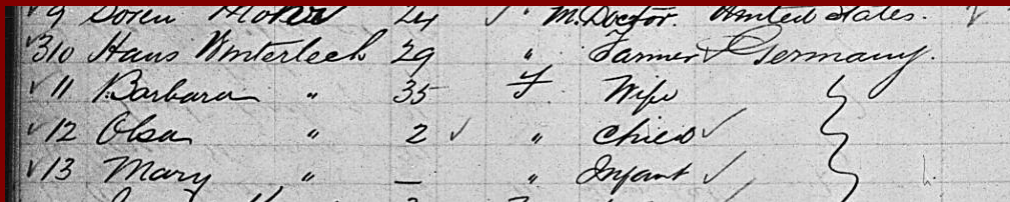 ✓9 Soren 24 ✓ " M. Doctor. United States. ✓
✓310 Hans Winterlech 29 " Farmer Germany.
✓11 Barbara " 35 F Wife
✓12 Olsa " 2 ✓ " Child ✓
✓13 Mary " — " Infant ✓